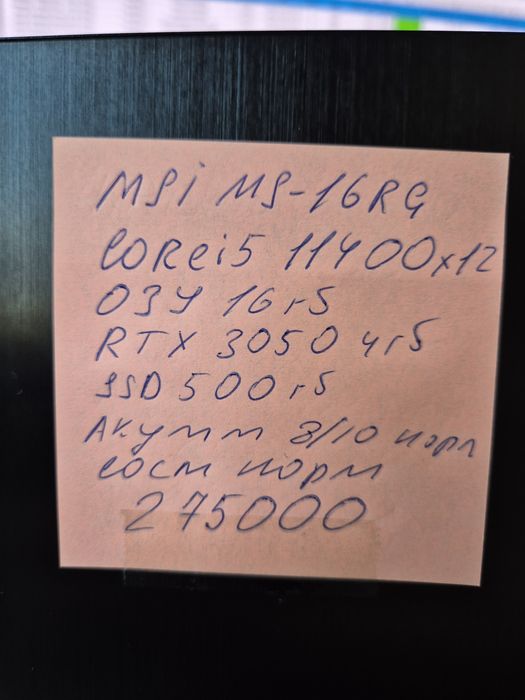 MSi MS-16RG
COREi5 11400x12
ОЗУ 16гб
RTX 3050 4гб
SSD 500гб
Акумм 8/10 норм
сост норм
275000